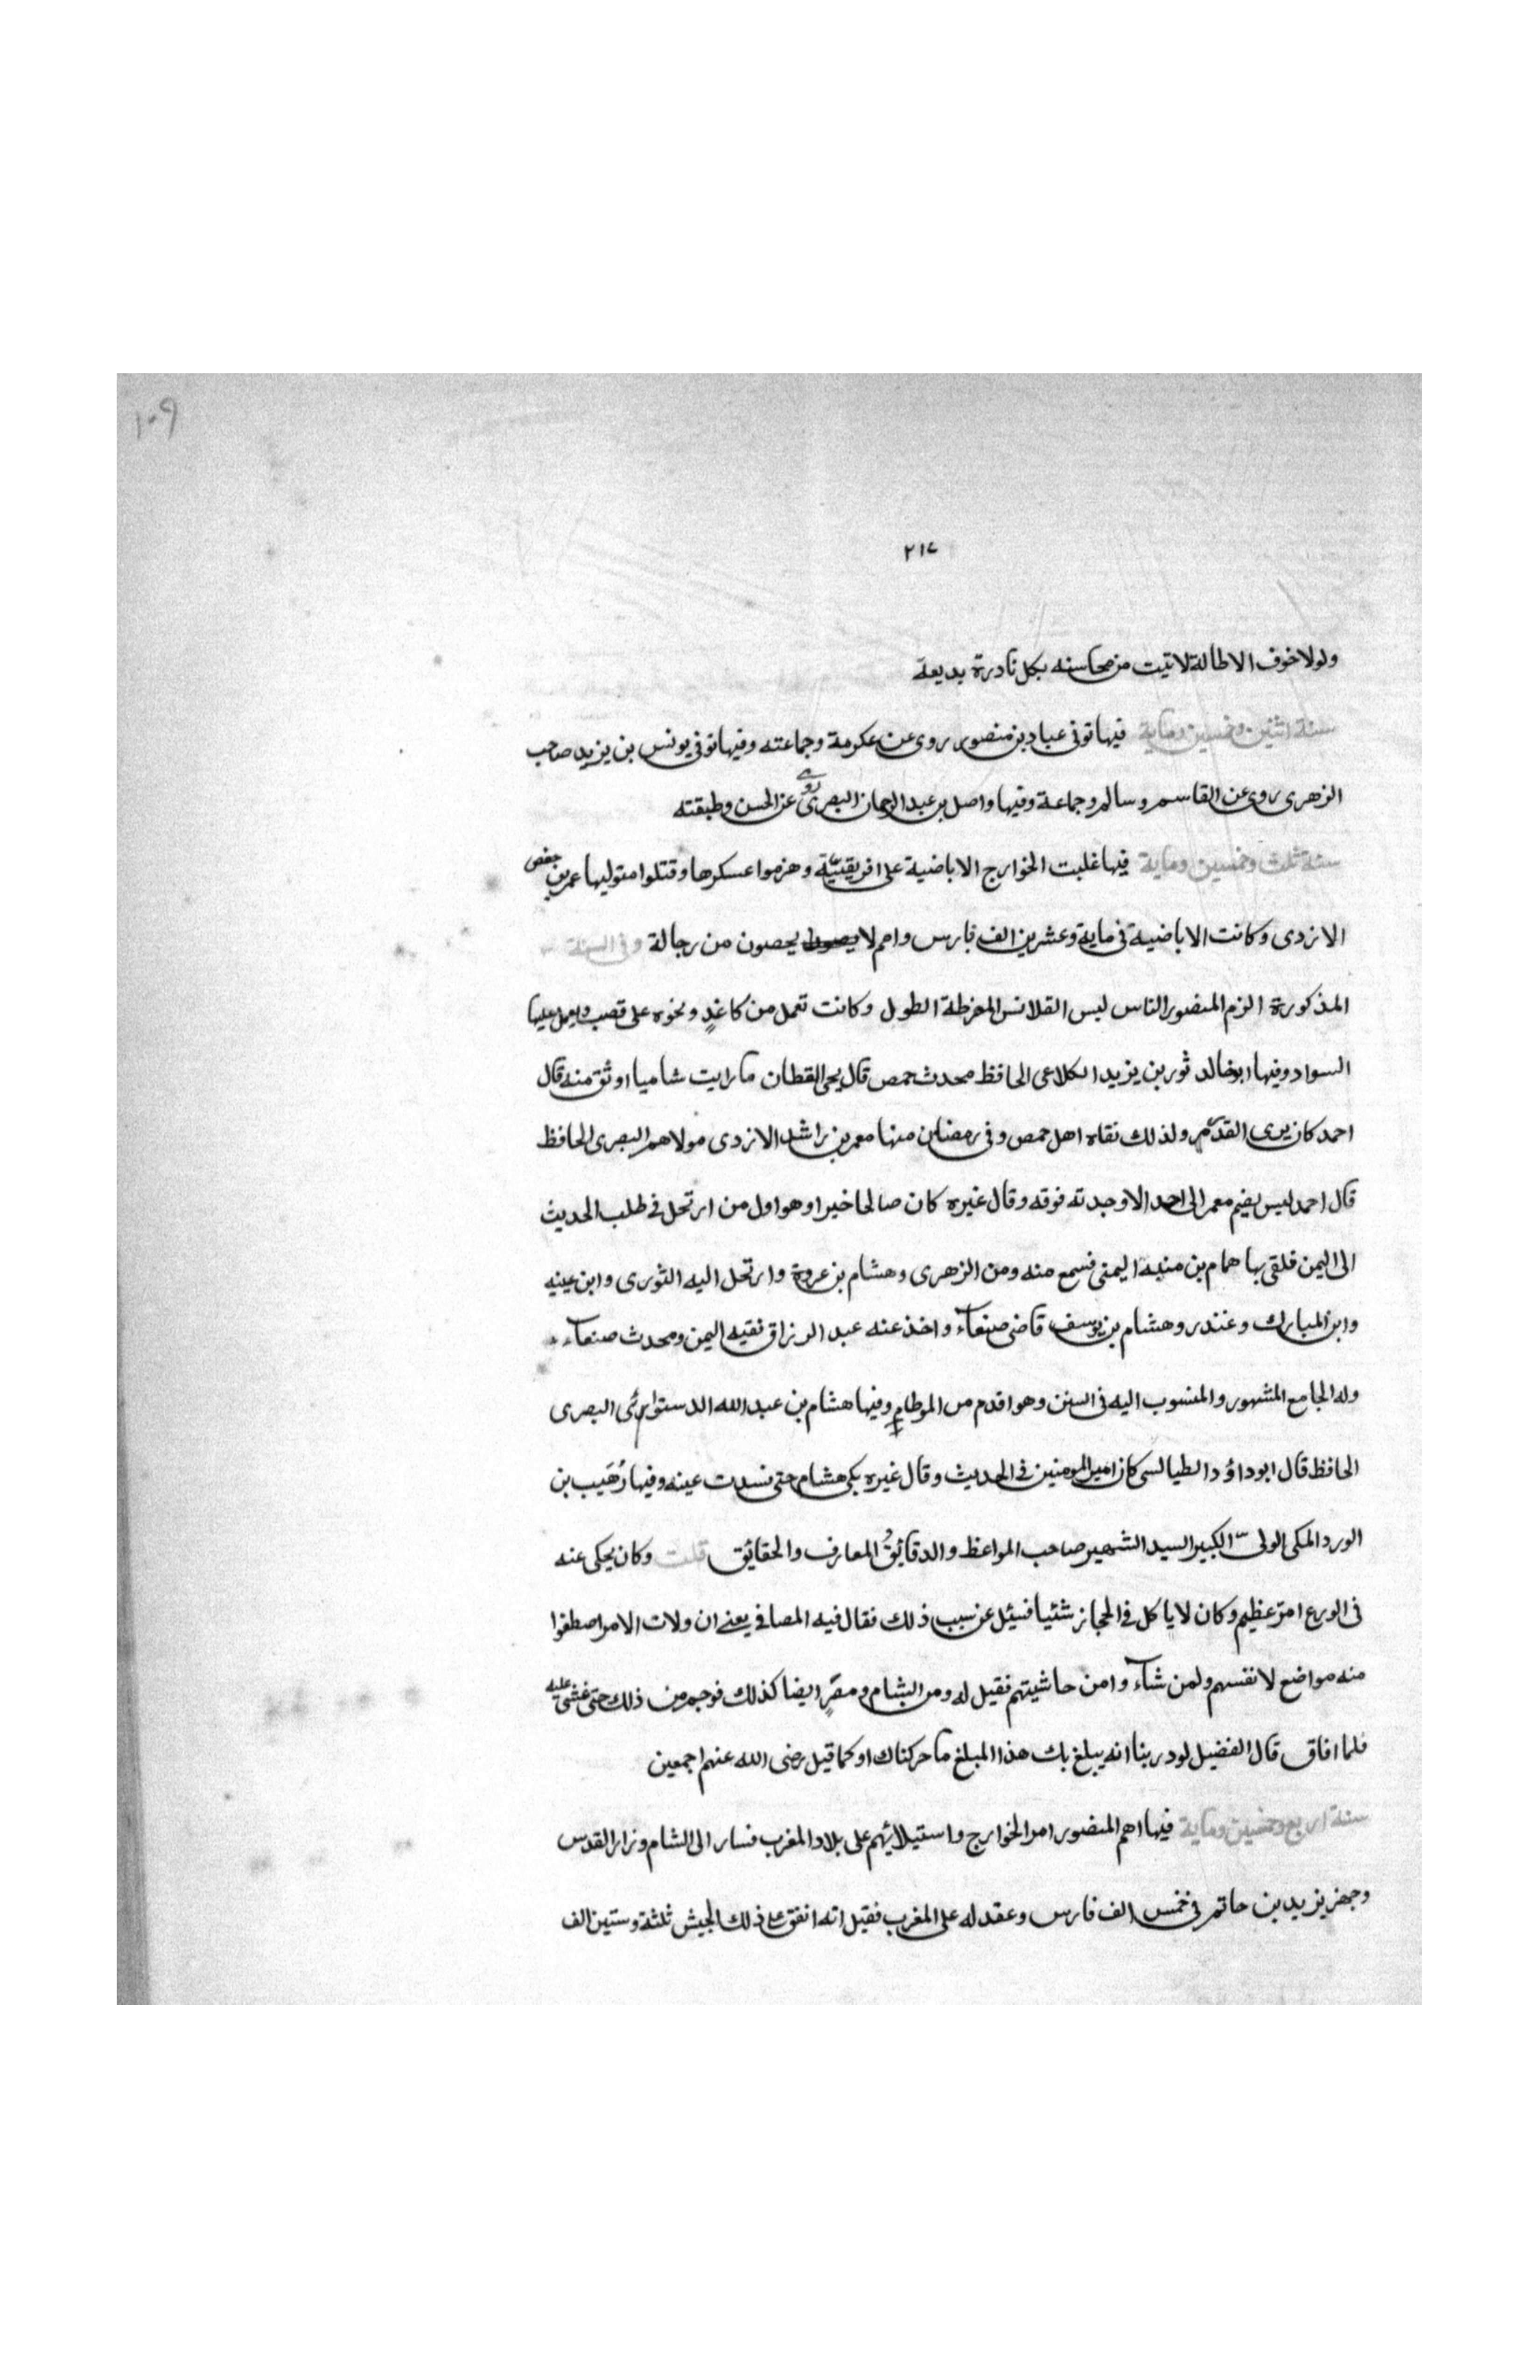 ١٠٩
٢١٧
ولولا خوف الاطالة لاتيت من محاسنه بكل نادرة بديعة
سنة اثنين وخمسين وماية فيها توفى عباد بن منصور روى عن عكرمة وجماعته وفيها توفى يونس بن يزيد صاحب
الزهرى روى عن القاسم وسالم وجماعة وفيها واصل بن عبد الرحمان البصرى روى عن الحسن وطبقته
سنة ثلث وخمسين وماية فيها غلبت الخوارج الاباضية على افريقيّة وهزموا عسكرها وقتلوا متوليها عمر بن حفص
الازدى وكانت الاباضية فى ماية وعشرين الف فارس وامم لا يحصون من رجالة وفى السنة
المذكورة الزم المنصور الناس لبس القلانس المفرطة الطول وكانت تعمل من كاغدٍ ونحوه على قصب ويعمل عليها
السواد وفيها ابو خالد ثور بن يزيد الكلاعى الحافظ محدث حمص قال يحى القطان ما رايت شاميا اوثق منه قال
احمد كان يرى القدر ولذلك نقاه اهل حمص وفى رمضان منها معمر بن راشد الازدى مولاهم البصرى الحافظ
قال احمد ليس يضم معمر الى احد الا وجدته فوقه وقال غيره كان صالحا خيرا وهو اول من ارتحل فى طلب الحديث
الى اليمن فلقى بها همام بن منبه اليمنى فسمع منه ومن الزهرى وهشام بن عروة وارتحل اليه الثورى وابن عيينه
وابن المبارك وغندر وهشام بن يوسف قاضى صنعآء واخذ عنه عبد الرزاق فقيه اليمن ومحدث صنعآء
وله الجامع المشهور والمنسوب اليه فى السنن وهو اقدم من الموطا وفيها هشام بن عبد الله الدستوائى البصرى
الحافظ قال ابو داؤد الطيالسى كان امير المومنين فى الحديث وقال غيره بكى هشام حتى فسدت عينه وفيها وُهَيب بن
الورد المكى الولى الكبير السيد الشهير صاحب المواعظ والدقايق و المعارف والحقائق قلت وكان يحكى عنه
فى الورع امر عظيم وكان لا ياكل فى الحجاز شئيا فسيئل عن سبب ذلك فقال فيه المصافى يعنى ان ولات الامر اصطفوا
منه مواضع لانفسهم ولمن شآء وا من حاشيتهم فقيل له ومن الشام ومصرٍ ايضا كذلك فوجم من ذلك حتى غشى عليه
فلما افاق قال الفضيل لو درينا انه يبلغ بك هذا المبلغ ما حركناك او كما قيل رضى الله عنهم اجمعين
سنة اربع وخمسين وماية فيها اهم المنصور امر الخوارج واستيلائهم على بلاد المغرب فسار الى الشام وزار القدس
وجهز يزيد بن حاتم فى خمس الف فارس وعقد له على المغرب فقيل انه انفق على ذلك الجيش ثلثة وستين الف